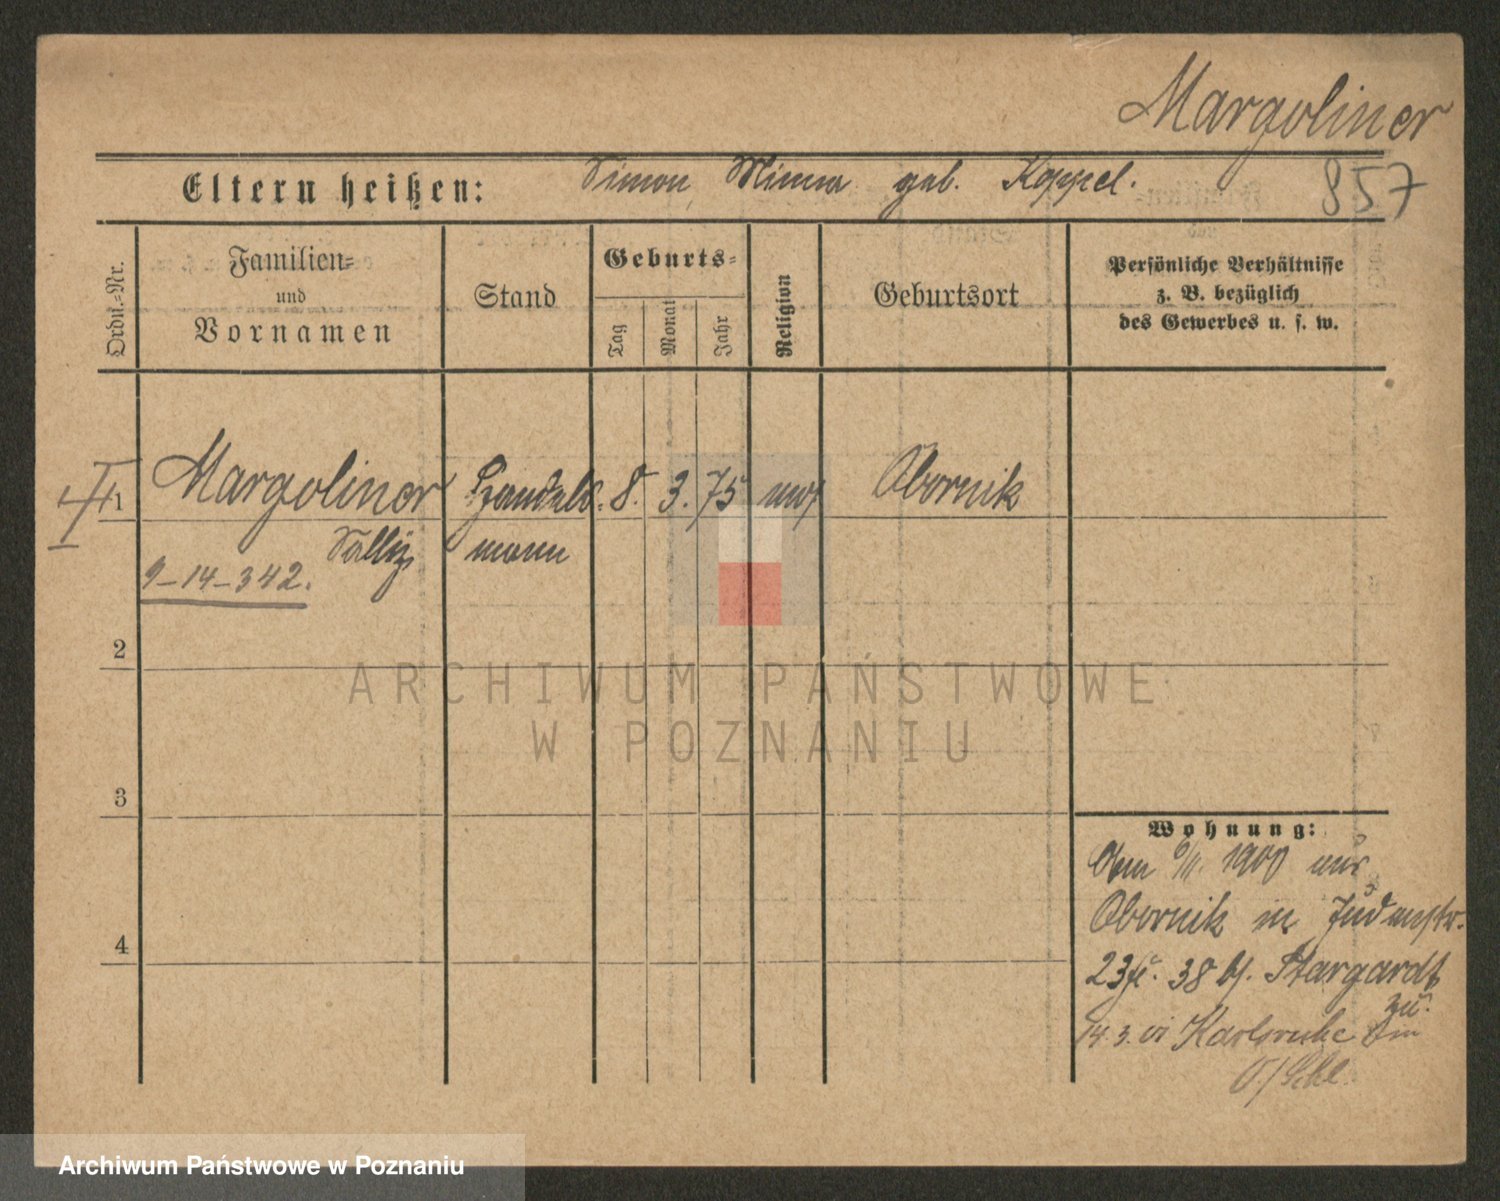 Margoliner
Eltern heißen: Simon, Minna geb. Koppel.
857
Ordn.-Nr.
Familien-
und
Vornamen
Stand
Geburts-
Tag
Monat
Jahr
Religion
Geburtsort
Persönliche Verhältnisse
z. B. bezüglich
des Gewerbes u. s. w.
1 Margoliner Handels- 8. 3. 75 mos Obornik
Sally mann
9-14-342.
2
3
4
Wohnung:
1900 aus
Obornik in Judenstr.
23 38 b/. Stargardt
zu.
14.3.01 Karlsruhe
ARCHIWUM PAŃSTWOWE
W POZNANIU
Archiwum Państwowe w Poznaniu